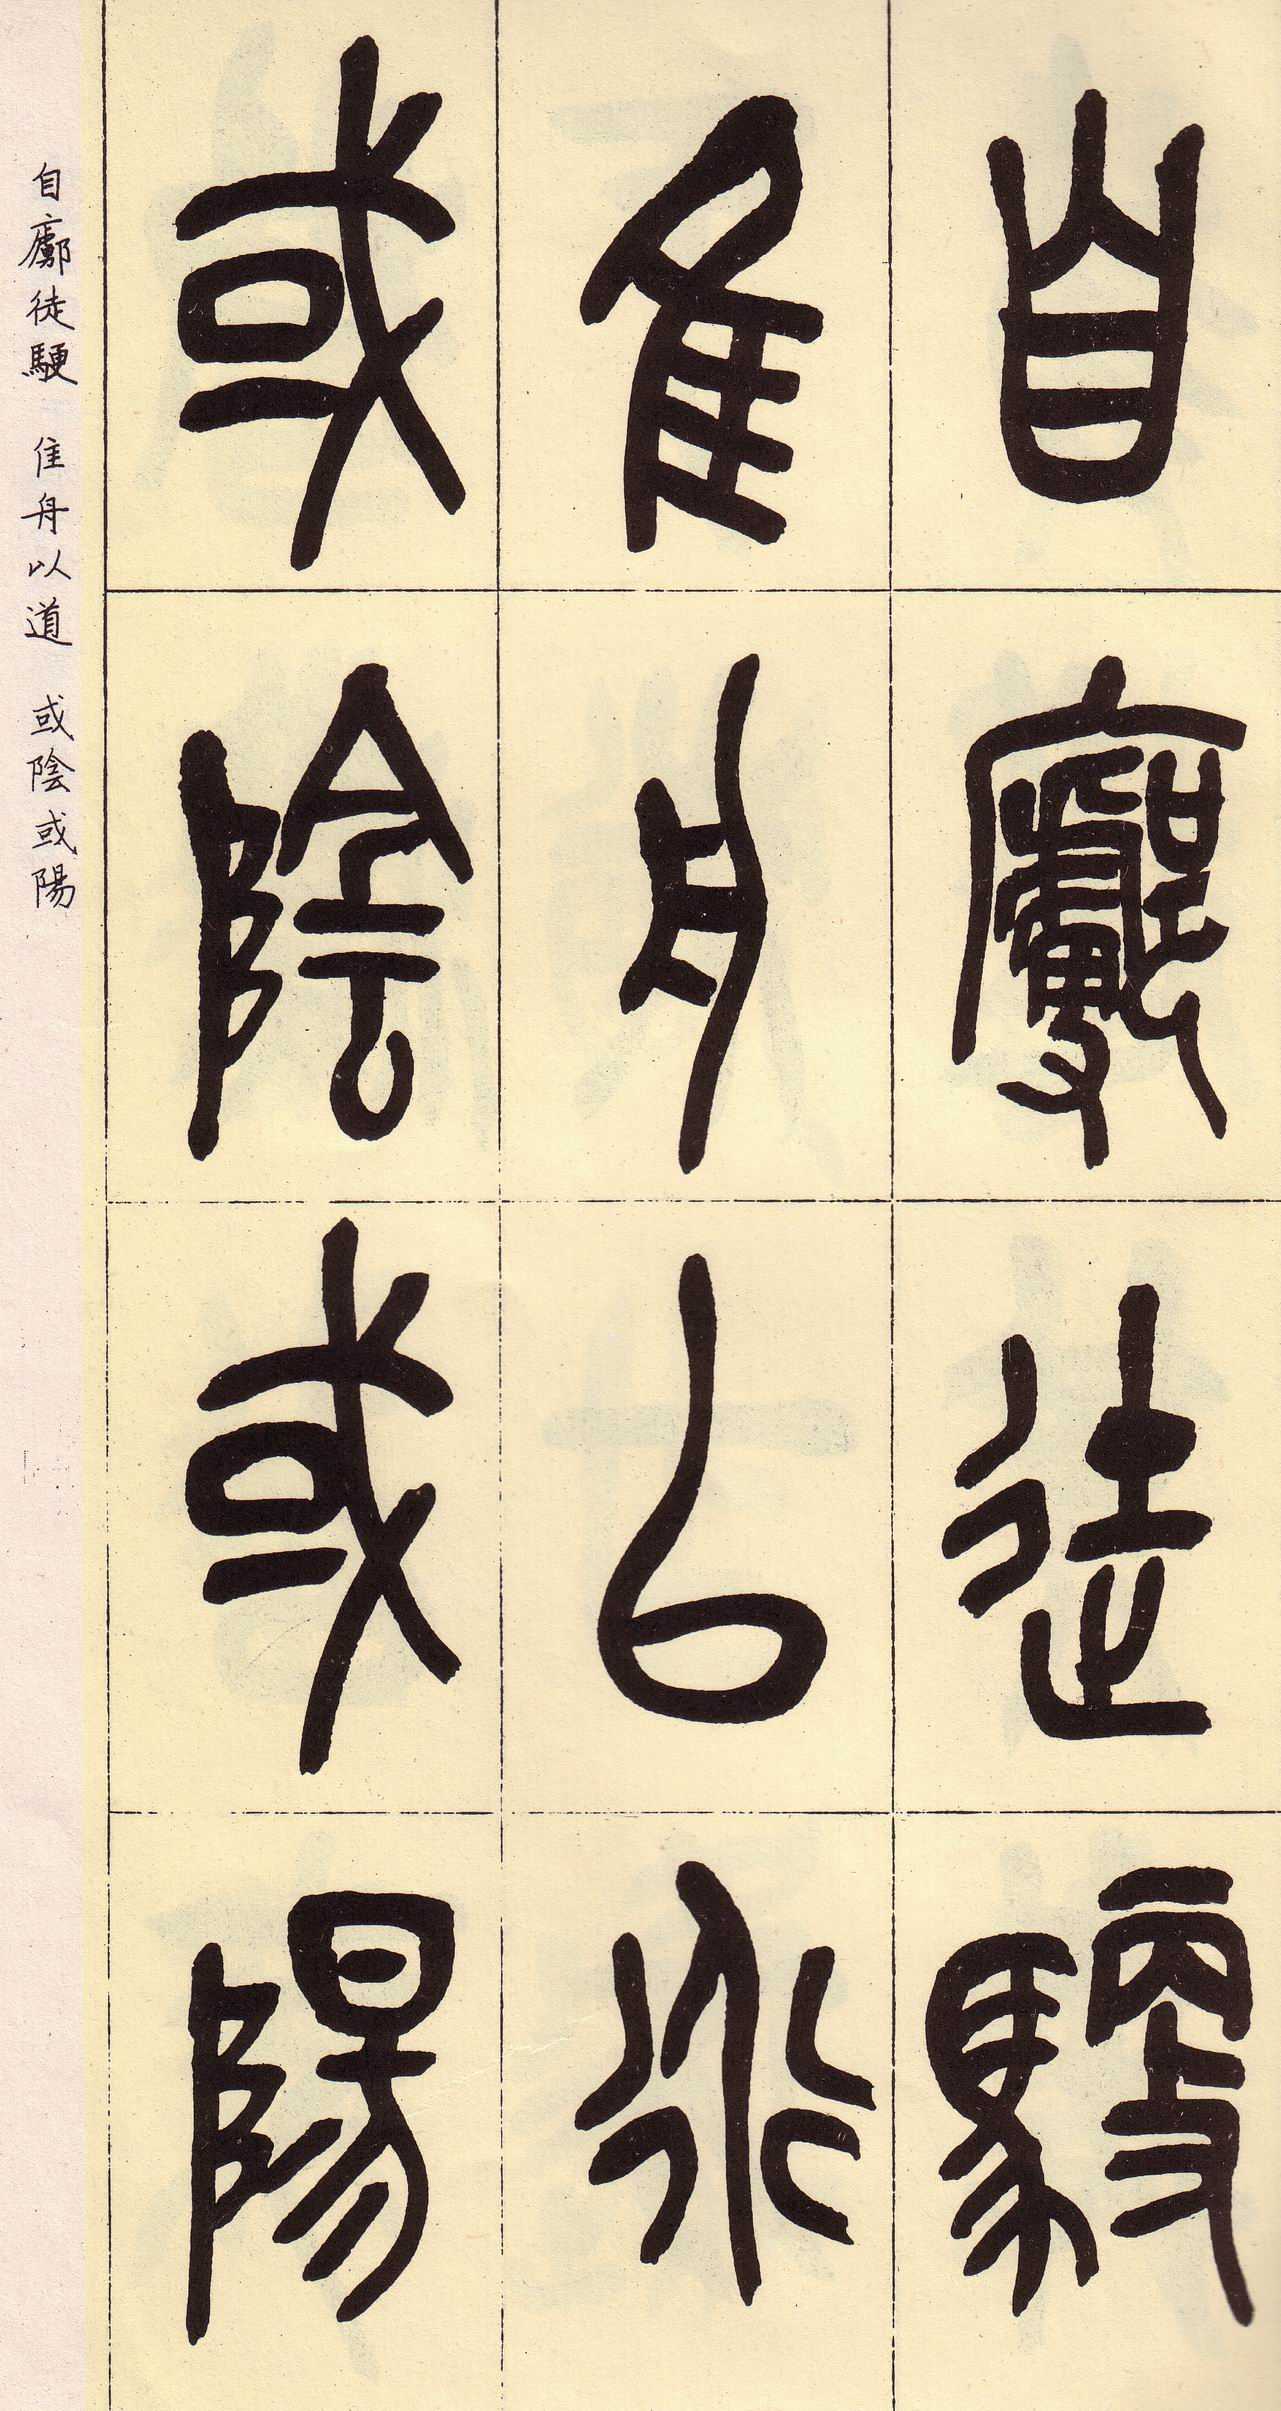 自廓徒駿
隹舟以道
或陰或陽
自廓徒駿 隹舟以道 或陰或陽